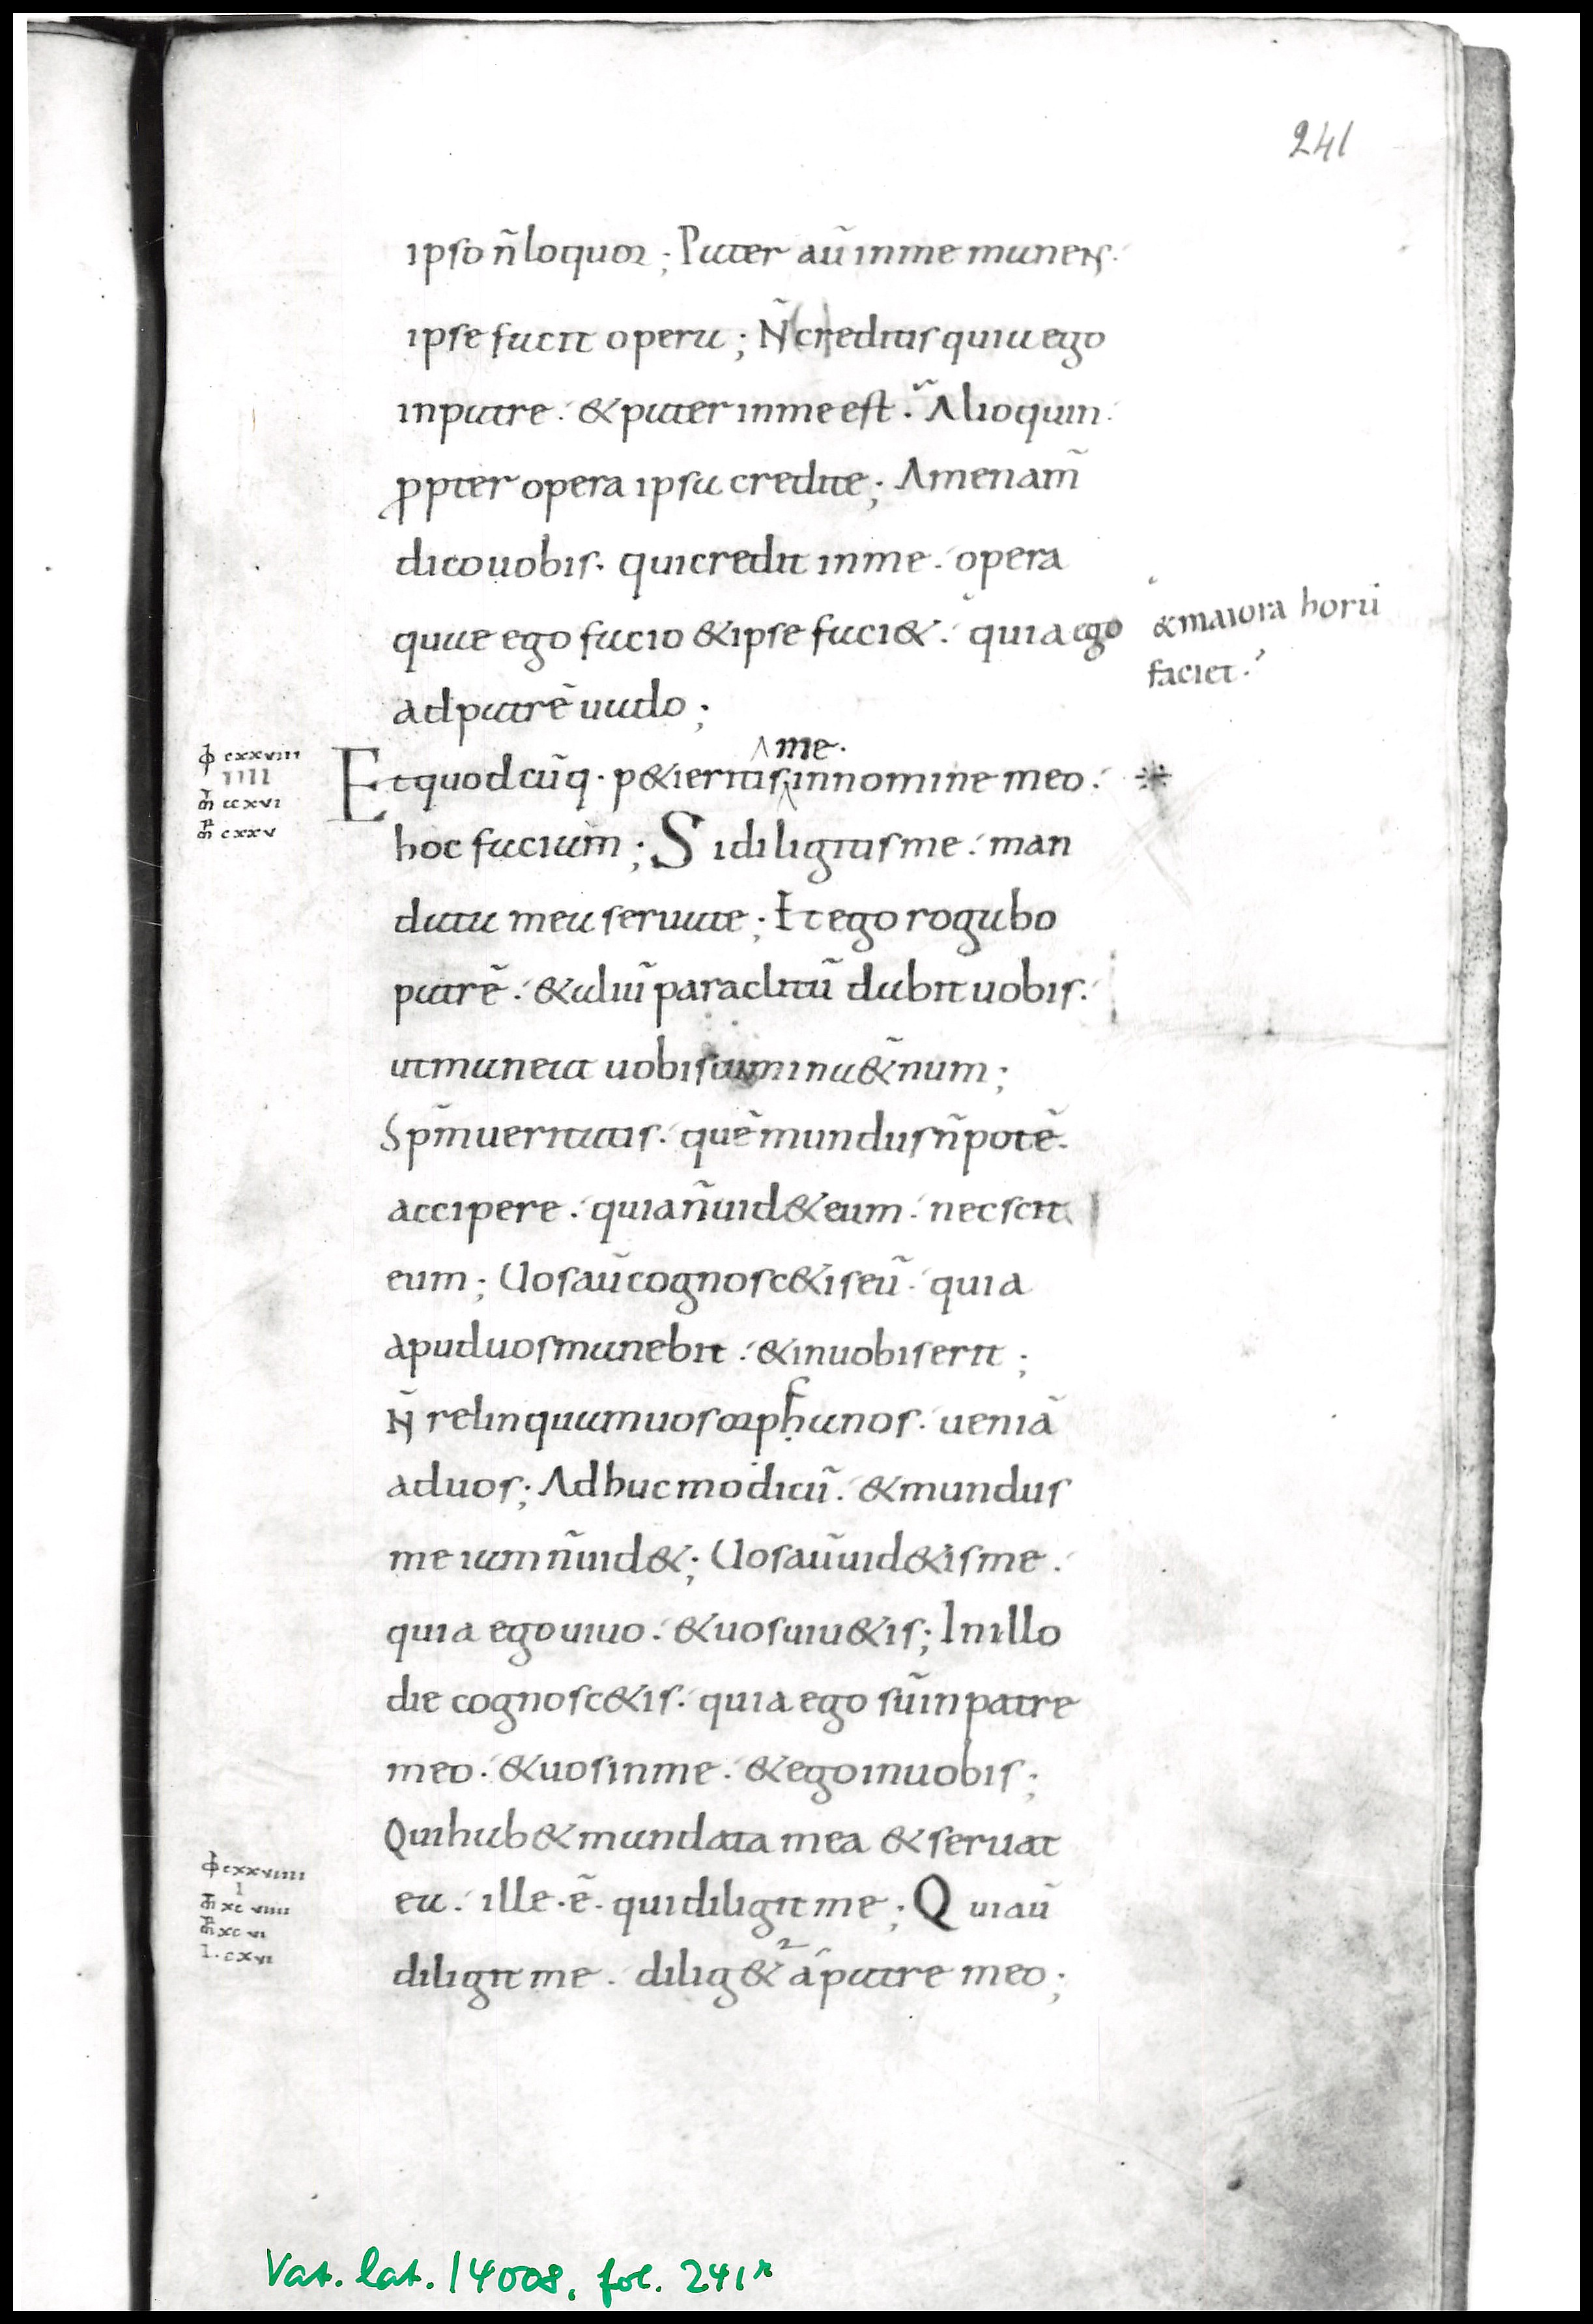 241
ipso n̄ loquor ; Pater aū in me manens .
ipse facit opera ; N̄ creditis quia ego
in patre . & pater in me est . Alioquin .
p̱pter opera ipsa credite ; Amen am̄
dico uobis . qui credit in me . opera
quae ego facio & ipse faci& . quia ego
& maiora horū
faciet .
ad patrē uado ;
me .
cxxviii
iiii
ccxvi
cxxv
Et quodcūq · p&ieritis in nomine meo .
hoc faciam ; Si diligitis me . man
data mea seruate ; Et ego rogabo
patrē . & aliū paraclitū dabit uobis .
ut maneat uobiscum in a&̄num ;
Sp̄m ueritatis . quē mundus n̄ potē .
accipere . quia n̄ uid& eum . nec scit
eum ; Uos aū cognosc&is eū . quia
apud uos manebit . & in uobis erit ;
N̄ relinquam uos orphanos . ueniā
ad uos ; Adhuc modicū . & mundus
me iam n̄ uid& ; Uos aū uid&is me .
quia ego uiuo . & uos uiu&is ; In illo
die cognosc&is . quia ego sū in patre
meo . & uos in me . & ego in uobis ;
Qui hab& mandata mea & seruat
cxxviiii
i
xcviiii
xcvi
l . cxvi
ea . ille · ē · qui diligit me ; Qui aū
diligit me . dilig& a patre meo ;
Vat. lat. 14008, fol. 241r